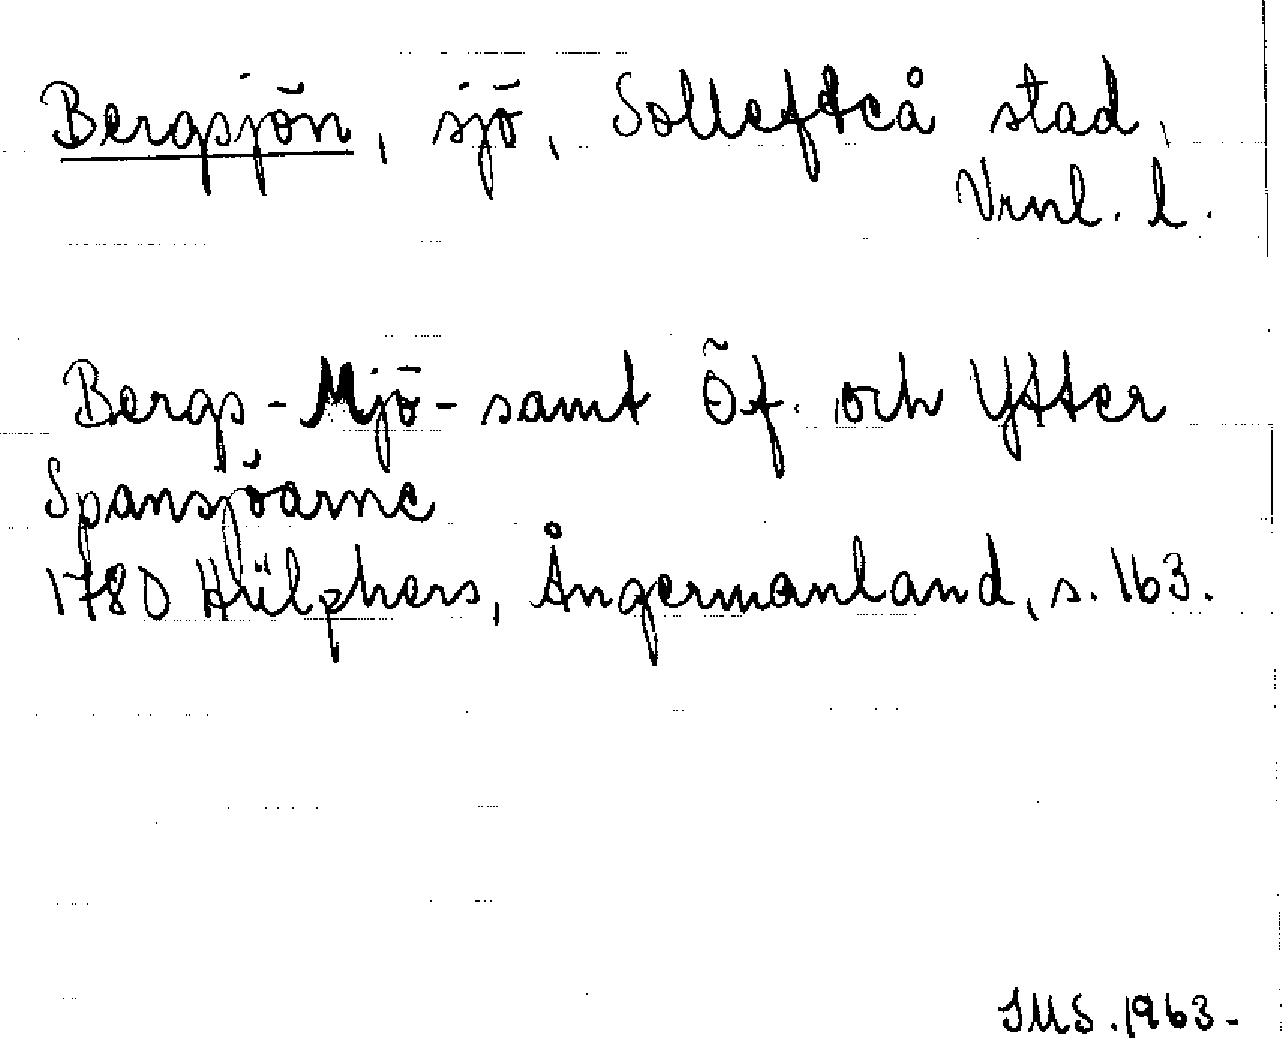 Bergsjön, sjö, Sollefteå stad,
Vrnl. l.
Bergs-Mjö- samt Öf. och Ytter
Spansjöarne
1780 Hülphers, Ångermanland, s. 163.
IMS. 1963-